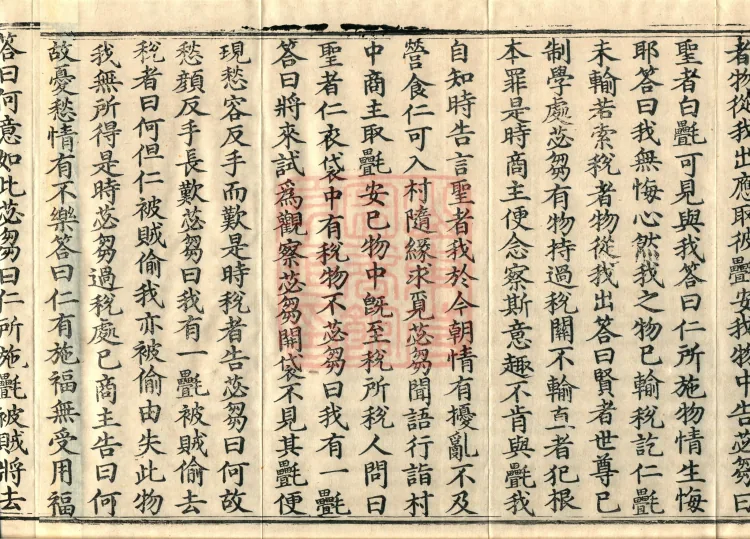 者物從我出應取彼㲲安我物中告苾芻曰
聖者白㲲可見與我答曰仁所施物情生悔
耶答曰我無悔心然我之物已輸稅訖仁㲲
未輸若索稅者物從我出答曰賢者世尊已
制學處苾芻有物持過稅關不輸直者犯根
本罪是時商主便念察斯意趣不肯與㲲我
自知時告言聖者我於今朝情有擾亂不及
營食仁可入村隨緣求覓苾芻聞語行詣村
中商主取㲲安已物中既至稅所稅人問曰
聖者仁衣袋中有稅物不苾芻曰我有一㲲
答曰將來試為觀察苾芻開袋不見其㲲便
現愁容反手而歎是時稅者告苾芻曰何故
愁顏反手長歎苾芻曰我有一㲲被賊偷去
稅者曰何但仁被賊偷我亦被偷由失此物
我無所得是時苾芻過稅處已商主告曰何
故憂愁情有不樂答曰仁有施福無受用福
答曰何意如此苾芻曰仁所施㲲被賊將去